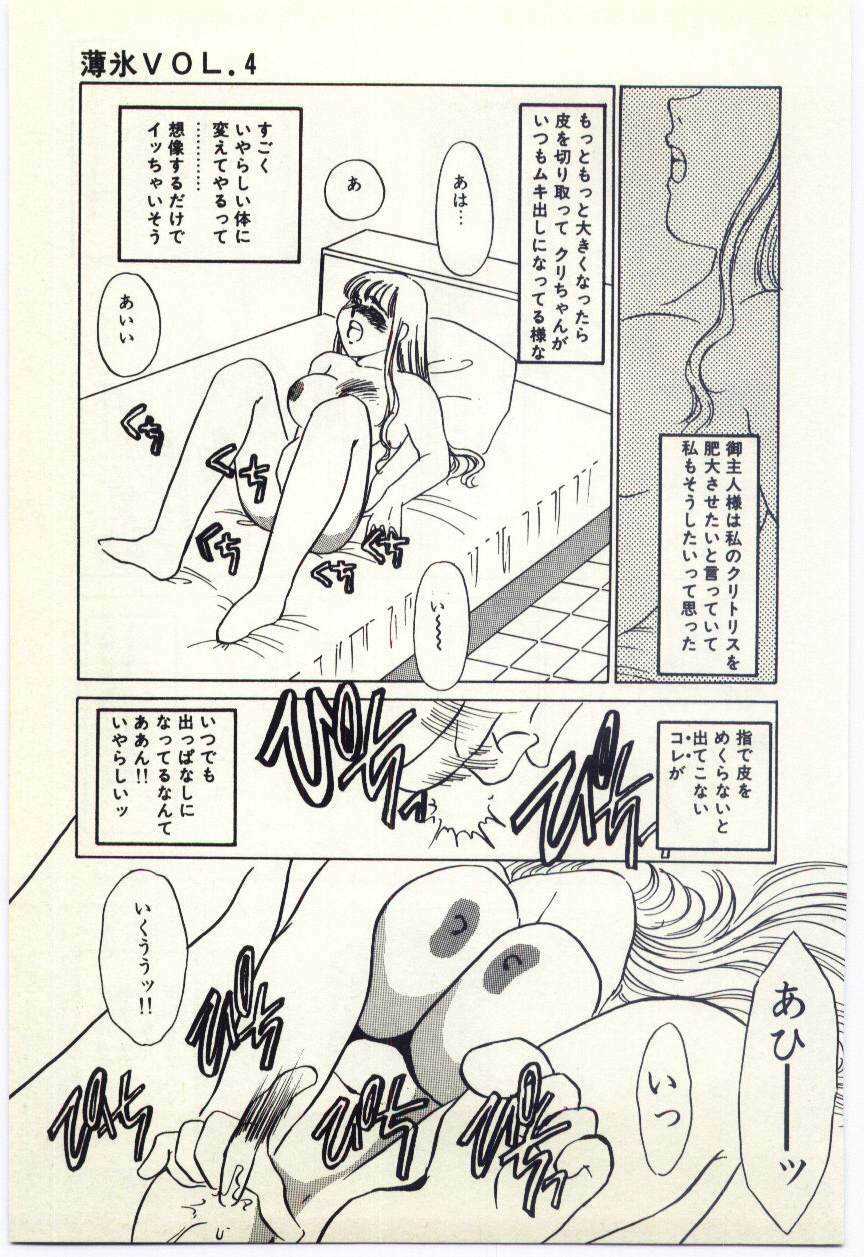 薄氷VOL.4
御主人様は私のクリトリスを
肥大させたいと言っていて
私もそうしたいって思った
もっともっと大きくなったら
皮を切り取って クリちゃんが
いつもムキ出しになってる様な
あは…
あ
すごく
いやらしい体に
変えてやるって
…………
想像するだけで
イッちゃいそう
あいい
くち
くち
くち
くち
くち
い〜〜
指で皮を
めくらないと
出てこない
コレが
ぴち
ぴち
いつでも
出っぱなしに
なってるなんて
ああん!!
いやらしいッ
あひーーッ
いっ
いくううッ!!
ぴち
ぴち
ぴち
ぴち